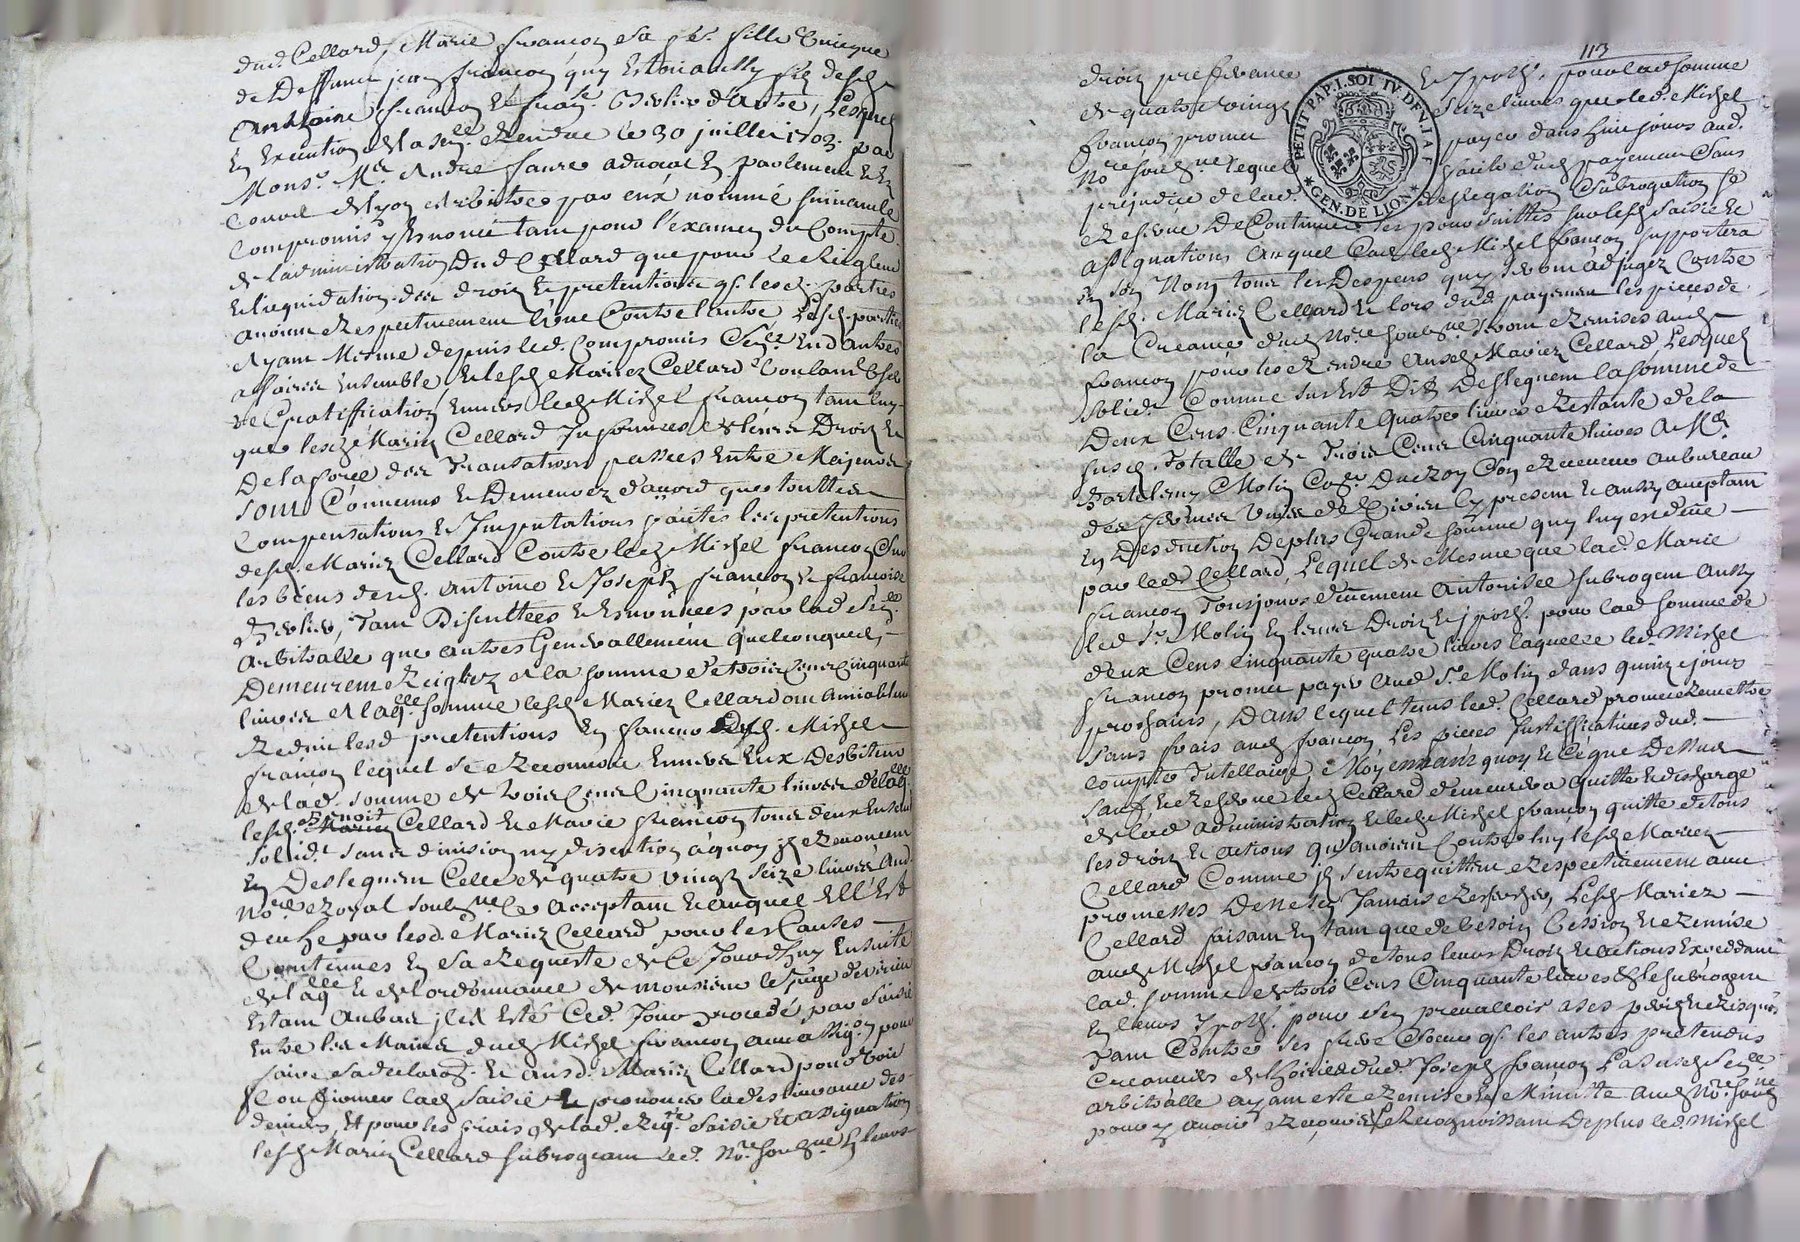 dud. Cellard, Marie françon sa fe. fille unique
de Deffunct jean françon quy estoit aussy fils desd.
Anthoine françon et fran.se Berlier d'autre, Lesquels
En Execution de la sen.ce Rendue le 30 juillet 1703. par
Mons.r M.e André faure advocat En parlement et Es
Cours de Lyon arbitre par eux nommé suivant le
Compromis y Enoncé tant pour l'examen du Compte
de l'administration dud. Cellard que pour le Reiglem.t
et liquidation des droits et pretentions q. lesd. parties
avoient Respectivement l'une Contre l'autre Lesd. parties
Ayant Mesme depuis led. Compromis autres
affaires Ensemble, et lesd. Mariez Cellard Voulant User
de Gratiffication Envers led. Michel françon tant luy
que lesd. Mariez Cellard Informés de leurs Droits et
De la force des Transations passées Entre Majeurs
sont Convenus et Demeurez d'accord que touttes
Compensations et Imputations faictes les pretentions
desd. Mariez Cellard Contre led. Michel françon Sur
les biens desd. Antoine et Joseph françon et françoise
Berlier, Tant Discuttées et Enoncées par lad. Sen.ce
Arbitralle que autres Generallement quelconques,
Demeurent Reiglez a la somme de trois Cens Cinquante
livres A laq.lle somme lesd. Mariez Cellard ont Amiablem.t
Reduit lesd. pretentions En faveur dud. Michel
françon lequel se Reconnoit Envers Eux Desbiteur
de lad. somme de trois Cens Cinquante livres de laq.lle
lesd. Benoit Cellard et Marie françon tous deux Ensemble
solid.t sans division ny discution a quoy ils Renoncent
En Desleguent Celle de quatre vingt seize livres Aud.
No.re Royal sousg.né Ce Acceptant et auquel Ell'Est
deuhe par lesd. Mariez Cellard pour les Causes
Contenues En sa Requeste de Ce Jourd'huy Ensuite
de laq.lle et de l'ordonnance de monsieur le juge de virieu
Estant Aubas il A Esté Ced. Jour procedé par saisie
Entre les Mains dud. Michel françon avec assig.on pour
faire sa declara.on et ausd. Mariez Cellard pour Voir
Confirmer lad. saisie et prononcer la deslivrance des
deniers, Et pour les frais de lad. Req.te saisie et assignation
lesd. Mariez Cellard subrogeant led. No.re sousg.né En leurs
113
droits preferance et ypoth. pour lad. somme
de quatre vingt seize livres que led. Michel
françon promet payer dans huit jours aud.
No.re sousg.né lequel faute dud. payement Sans
prejudice de lad. deslegation Subrogation se
Reserve De Continuer ses poursuittes sur lesd. saisie et
assignations auquel Cas led. Michel françon supportera
En son Nom tous les Despens quy seront adjugez Contre
lesd. Mariez Cellard et lors dud. payement les pieces de
la Creance dud. No.re sousg.né seront Remises aud.
françon pour les Rendre Ausd. Mariez Cellard, Lesquels
solid.t Comme sus est Dit Desleguent la somme de
Deux Cens Cinquante quatre livres Restante de la
susd. Totalle de Trois Cens Cinquante livres A M.e
Bartelemy Molin Con.er du Roy Receveur au bureau
des cy present et aussy aceptant
En Desduction De plus Grande somme quy luy est deue
par led. Cellard, Lequel de Mesme que lad. Marie
françon Tousjours deuement Autorisée subrogent Aussy
led. S.r Molin En leurs Droits et ypoth. pour lad. somme de
deux Cens Cinquante quatre livres laquelle led. Michel
françon promet payer Aud. S.r Molin dans quinze jours
prochains, Dans lequel tems led. Cellard promet Remettre
sans frais aud. françon Les pieces Justifficatives dud.
compte Tutellaire, Moyennant quoy et Ce que Dessus
sauf et Reservé led. Cellard demeurera quitte et deschargé
de lad. Administration et led. Michel françon quitte de tous
les droits et actions qu'avoient Contre luy lesd. Mariez
Cellard Comme ils s'entrequittent Respectivement avec
promesses De ne s'en Jamais Rechercher, Lesd. Mariez
Cellard faisant En tant que de besoin Cession et Remise
aud. Michel françon de tous leurs Droits et actions Exceddant
lad. somme de trois Cens Cinquante livres et le subrogent
En leurs ypoth. pour s'en prevalloir a ses perils et Risques
Tant Contre ses frere Soeur q. les autres pretendus
Creanciers de l'hoirie dud. Joseph françon La susd. Sen.ce
arbitralle ayant esté Remise En Minutte Aud. No.re sousg.né
pour y avoir Recours Reconnoissant De plus led. Michel
PETIT PAP. 1. SOL. IV. DEN. LA F.
GEN. DE LION